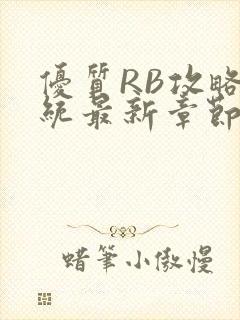 優質RB攻略
統最新章節
蜡筆小傲慢